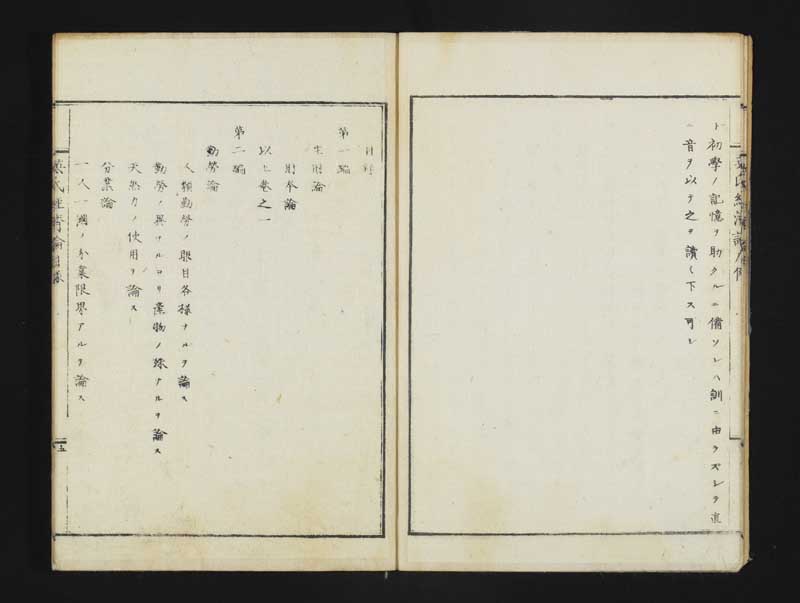 ト初學ノ記憶ヲ助クルニ備ソレハ訓ニ由ラズシテ直
ニ音ヲ以テ之ヲ讀ミ下ス可シ
目録
第一編
生財論
財本論
以上巻之一
第二編
勤勞論
人類勤勞ノ眼目各様ナルヲ論ス
勤勞ノ異ナルヨリ產物ノ殊ナルヲ論ス
天然力ノ使用ヲ論ス
分業論
一人一國ノ分業限界アルヲ論ス
英氏經濟論目録
五